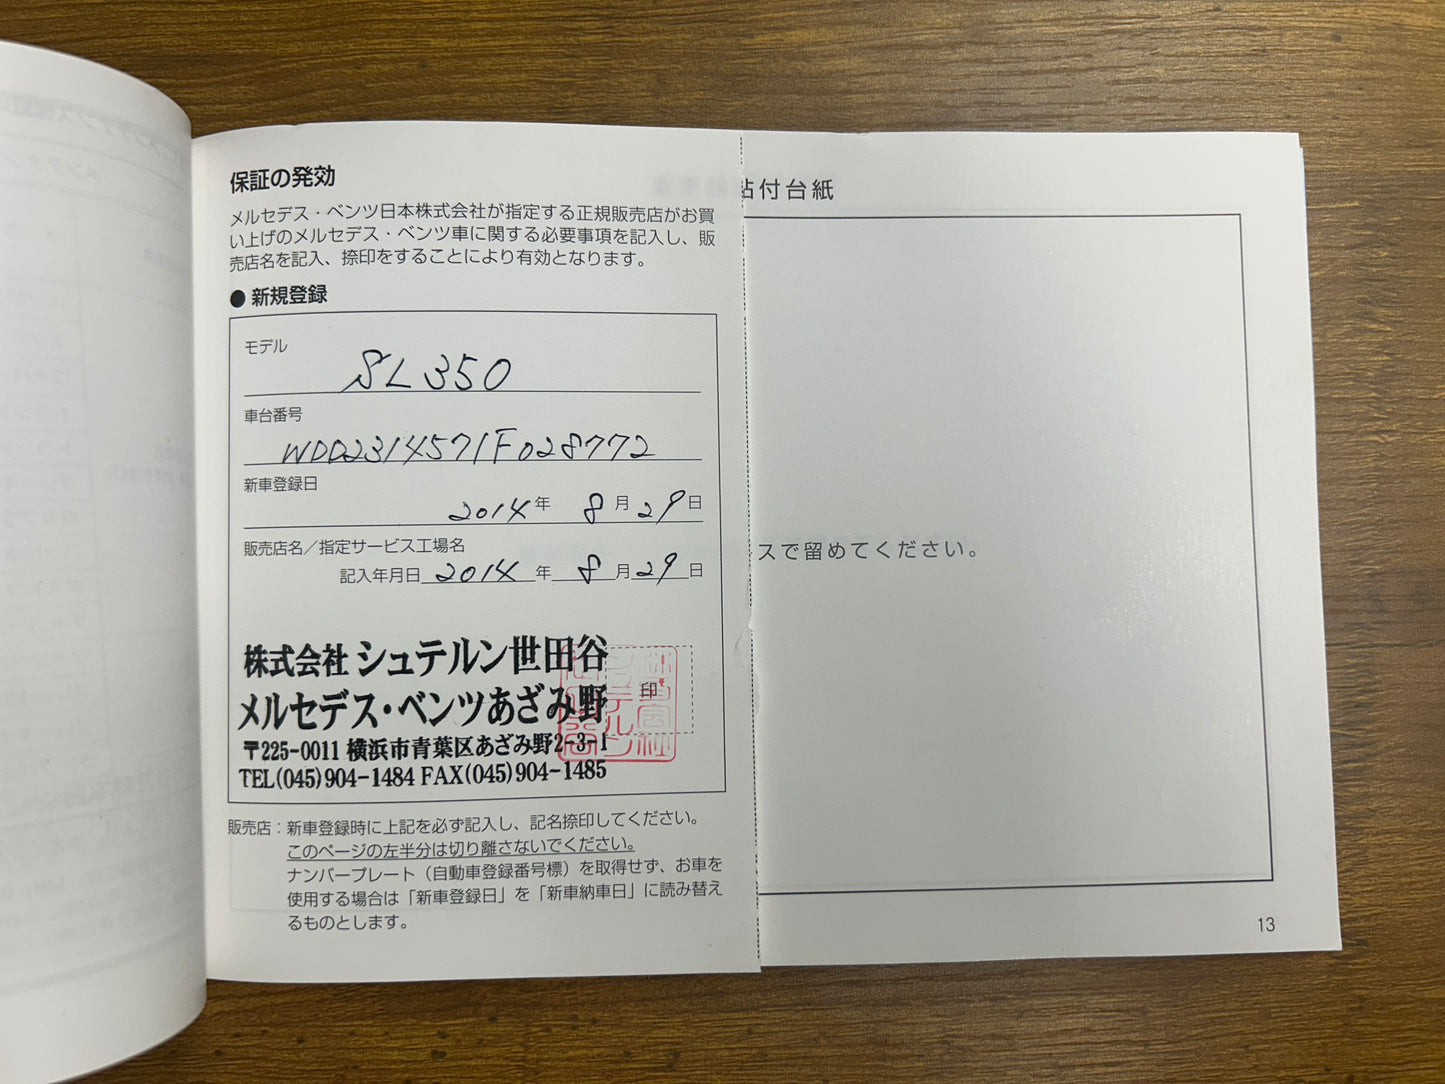 保証の発効
メルセデス・ベンツ日本株式会社が指定する正規販売店がお買
い上げのメルセデス・ベンツ車に関する必要事項を記入し、販
売店名を記入、捺印をすることにより有効となります。
● 新規登録
モデル
SL350
車台番号
WDD2314571F028772
新車登録日
2014年 8月29日
販売店名／指定サービス工場名
記入年月日 2014年 8月29日
株式会社 シュテルン世田谷
メルセデス・ベンツあざみ野
印
〒225-0011 横浜市青葉区あざみ野2-3-1
TEL(045)904-1484 FAX(045)904-1485
販売店：新車登録時に上記を必ず記入し、記名捺印してください。
このページの左半分は切り離さないでください。
ナンバープレート（自動車登録番号標）を取得せず、お車を
使用する場合は「新車登録日」を「新車納車日」に読み替え
るものとします。
貼付台紙
スで留めてください。
13